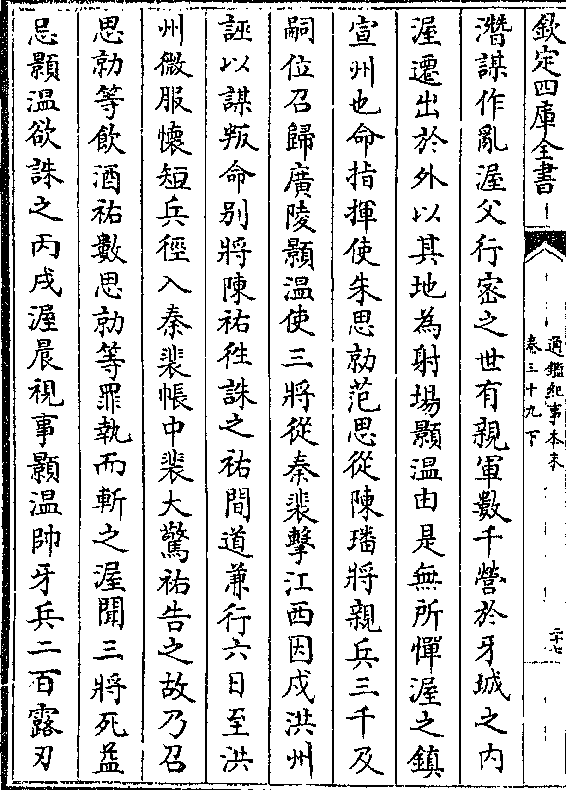 欽定四庫全書
通鑑紀事本末
卷三十九下
二十七
潛謀作亂渥父行密之世有親軍數千營於牙城之内
渥遷出於外以其地為射場顥温由是無所憚渥之鎮
宣州也命指揮使朱思勍范思從陳璠將親兵三千及
嗣位召歸廣陵顥温使三將從秦裴擊江西因戍洪州
誣以謀叛命别將陳祐徃誅之祐間道兼行六日至洪
州微服懷短兵徑入秦裴帳中裴大驚祐告之故乃召
思勍等飲酒祐數思勍等罪執而斬之渥聞三將死益
忌顥温欲誅之丙戌渥晨視事顥温帥牙兵二百露刃